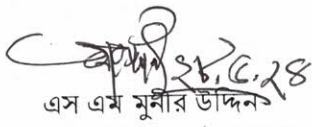 ২৮.৫.২৪
এস এম মুনীর উদ্দিন